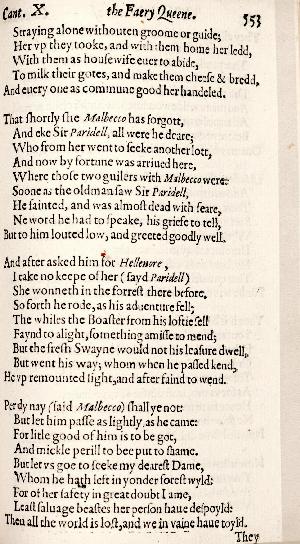 Cant. X. the Faery Queene. 553
Straying alone withouten groome or guide;
Her vp they tooke, and with them home her ledd,
With them as housewife euer to abide,
To milk their gotes, and make them cheese & bredd,
And euery one as commune good her handeled.
That shortly she Malbecco has forgott,
And eke Sir Paridell, all were he deare;
Who from her went to seeke another lott,
And now by fortune was arriued here,
Where those two guilers with Malbecco were:
Soone as the oldman saw Sir Paridell,
He fainted, and was almost dead with feare,
Ne word he had to speake, his griefe to tell,
But to him louted low, and greeted goodly well.
And after asked him for Hellenore,
I take no keepe of her (sayd Paridell)
She wonneth in the forrest there before.
So forth he rode, as his aduenture fell;
The whiles the Boaster from his loftie sell
Faynd to alight, something amisse to mend;
But the fresh Swayne would not his leasure dwell,
But went his way; whom when he passed kend,
He vp remounted light, and after faind to wend.
Perdy nay (said Malbecco) shall ye not:
But let him passe as lightly, as he came:
For litle good of him is to be got,
And mickle perill to bee put to shame.
But let vs goe to seeke my dearest Dame,
Whom he hath left in yonder forest wyld:
For of her safety in great doubt I ame,
Least saluage beastes her person haue despoyld:
Then all the world is lost, and we in vaine haue toyld.
They